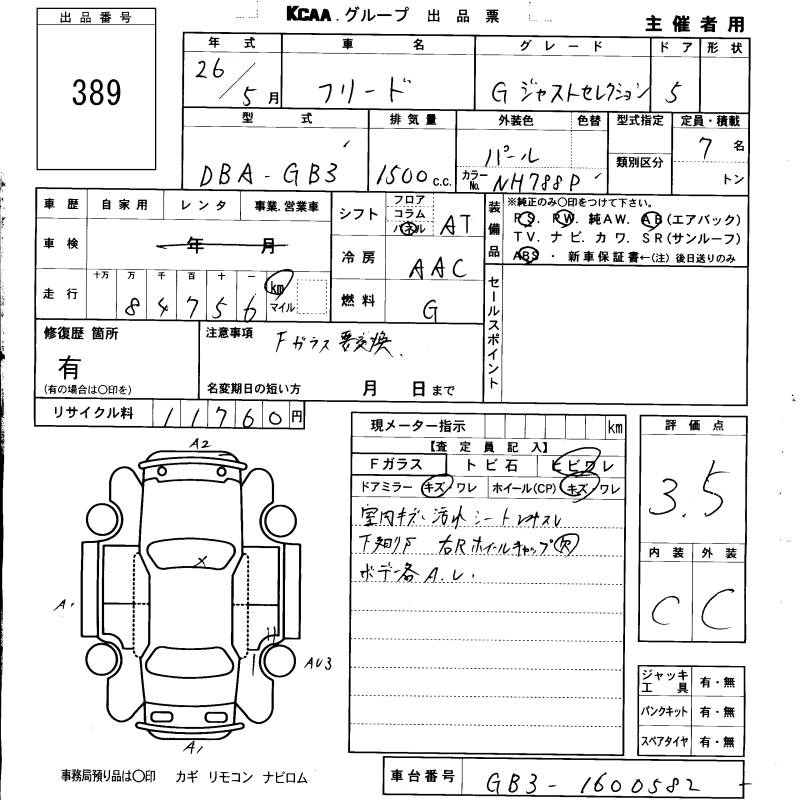 出品番号
389
KCAA.グループ 出品票
主催者用
年式 車名 グレード ドア 形状
26/5月 フリード G ジャストセレクション 5
型式 排気量 外装色 色替 型式指定 定員・積載
DBA-GB3 1500c.c. パール 7名
カラーNo. NH788P 類別区分 トン
車歴 自家用 レンタ 事業.営業車
車検 年 月
走行 十万 万 千 百 十 一
84756 km マイル
シフト フロア コラム パネル AT
冷房 AAC
燃料 G
装備品
※純正のみ○印をつけて下さい。
PS. PW. 純AW. AB(エアバック)
TV. ナビ. カワ. SR(サンルーフ)
ABS・新車保証書←(注)後日送りのみ
セールスポイント
修復歴 箇所
有
(有の場合は○印を)
注意事項
Fガラス要交換.
名変期日の短い方 月 日まで
リサイクル料 11760円
現メーター指示 km
【査定員記入】
Fガラス トビ石 ヒビワレ
ドアミラー キズ・ワレ ホイール(CP) キズ・ワレ
室内キズ、汚れ シート
下 右Rホイールキャップ欠
ボデー各A.U.
評価点
3.5
内装 外装
C C
A2
X
A1
H
AU3
A1
ジャッキ工具 有・無
パンクキット 有・無
スペアタイヤ 有・無
事務局預り品は○印 カギ リモコン ナビロム
車台番号 GB3-1600582